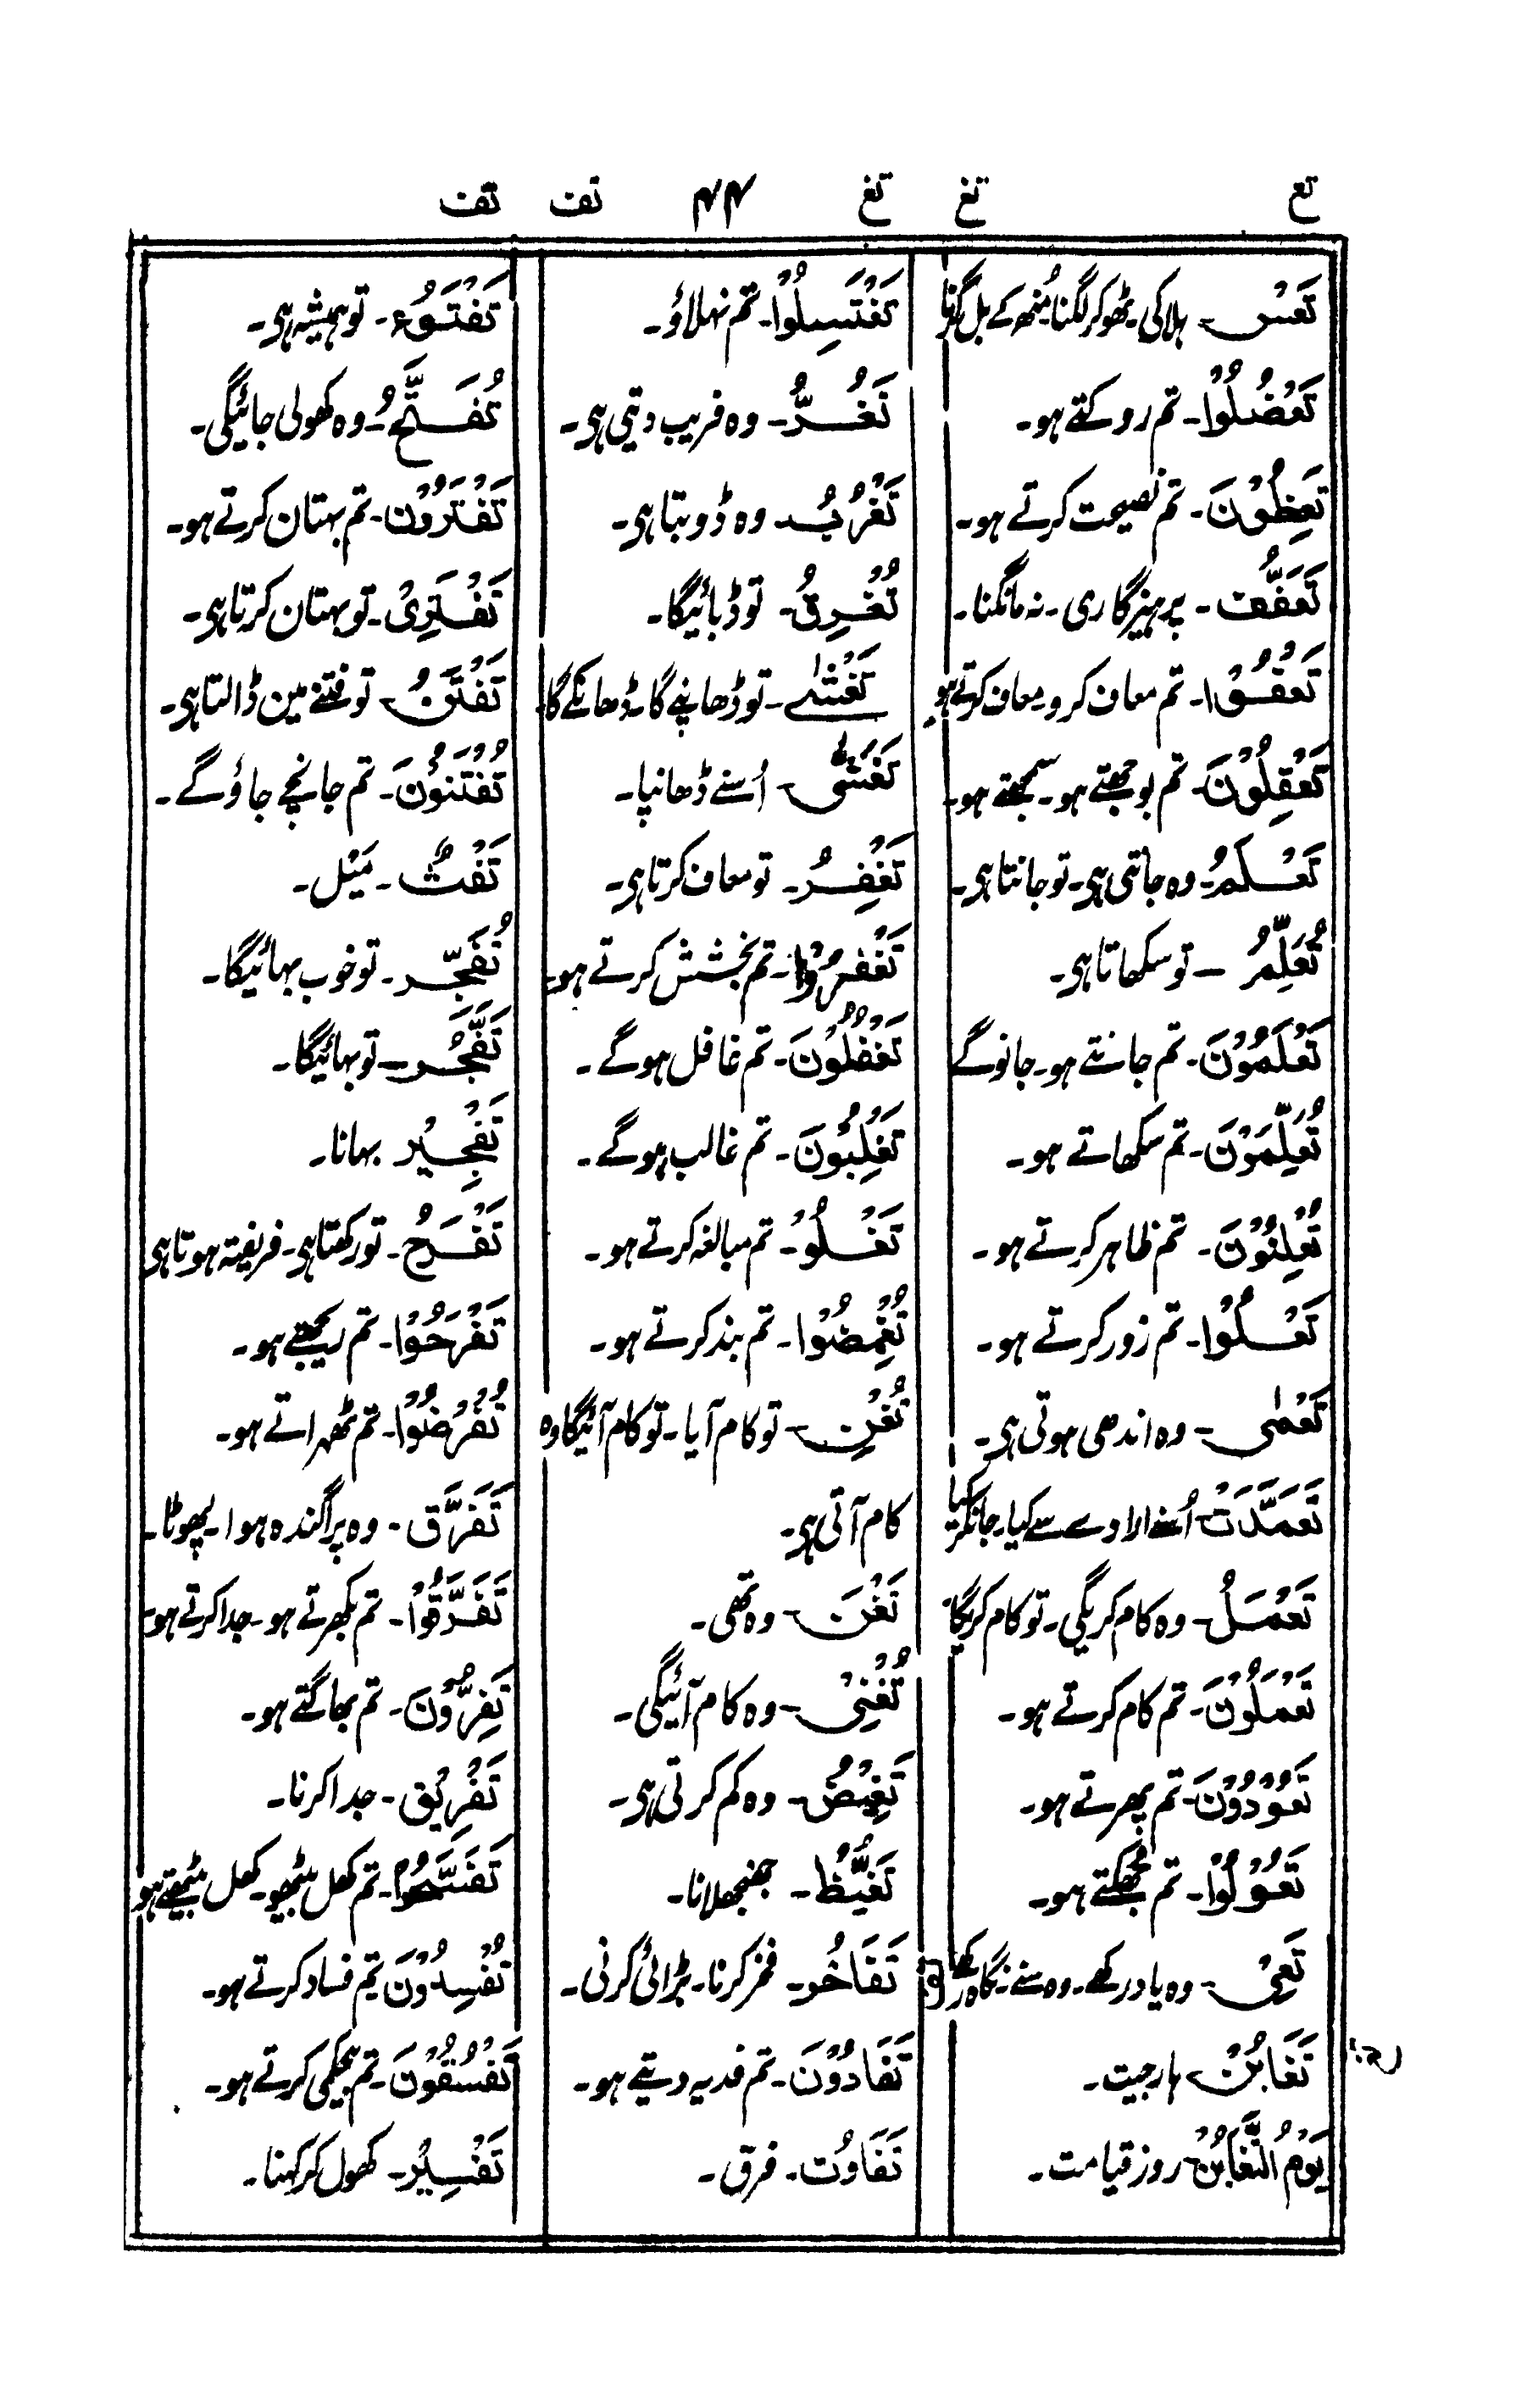 تع تغ تغ ۴۴ تف تف
تَعْس۔ ہلاکی۔ ٹھوکر لگنا مُنھ کے بل گرنا
تَعْضُلُوْا۔ تم روکتے ہو۔
تَعِظُوْنَ۔ تم نصیحت کرتے ہو۔
تَعَفُّف۔ پرہیزگاری۔ نہ مانگنا۔
تَعْفُوْا۔ تم معاف کرو۔ معاف کرتے ہو
تَعْقِلُوْنَ۔ تم بوجھتے ہو۔ سمجھتے ہو۔
تَعْلَمُ۔ وہ جانتی ہی۔ تو جانتا ہی۔
تُعَلِّمُ۔ تو سکھاتا ہی۔
تَعْلَمُوْنَ۔ تم جانتے ہو۔ جانوگے
تُعَلِّمُوْنَ۔ تم سکھاتے ہو۔
تُعْلِنُوْنَ۔ تم ظاہر کرتے ہو۔
تَعْلُوْا۔ تم زور کرتے ہو۔
تَعْمٰی۔ وہ اندھی ہوتی ہی۔
تَعَمَّدَتْ اُسنے ارادے سے کیا۔ جانکر کیا
تَعْمَلُ۔ وہ کام کریگی۔ تو کام کریگا
تَعْمَلُوْنَ۔ تم کام کرتے ہو۔
تَعُوْدُوْنَ۔ تم پھرتے ہو۔
تَعُوْلُوْا۔ تم جھکتے ہو۔
تَعِیْ۔ وہ یاد رکھے۔ وہ سنے۔ نگاہ رکھے
تَغَابُنْ ہارجیت۔
یَوْمُ التَّغَابُنْ روز قیامت۔
تَغْتَسِلُوْا۔ تم نہلاؤ۔
تَغُرُّ۔ وہ فریب دیتی ہی۔
تَغْرُبُ وہ ڈوبتا ہی۔
تُغْرِقُ۔ تو ڈبائیگا۔
تَغْشٰے۔ تو ڈھانپے گا۔ ڈھانکے گا
تَغَشّٰی۔ اُسنے ڈھانپا۔
تَغْفِرُ۔ تو معاف کرتا ہی۔
تَغْفِرُوْا۔ تم بخشش کرتے ہو۔
تَغْفُلُوْنَ۔ تم غافل ہوگے۔
تَغْلِبُوْنَ۔ تم غالب ہوگے۔
تَغْلُوْ۔ تم مبالغہ کرتے ہو۔
تُغْمِضُوْا۔ تم بند کرتے ہو۔
تُغْنِ۔ تو کام آیا۔ تو کام آئیگا وہ
کام آتی ہی۔
تَغْنَ۔ وہ تھی۔
تُغْنِیْ۔ وہ کام آئیگی۔
تَغِیْضُ۔ وہ کم کرتی ہی۔
تَغَیُّظْ۔ جھنجھلانا۔
تَفَاخُر۔ فخر کرنا۔ بڑائی کرنی۔
تَفَادُوْنَ۔ تم فدیہ دیتے ہو۔
تَفَاوُت۔ فرق۔
تَفْتَوُءُ۔ تو ہمیشہ ہی۔
تُفَتَّحُ۔ وہ کھولی جائیگی۔
تَفْتَرُوْنَ۔ تم بہتان کرتے ہو۔
تَفْتَرِیْ۔ تو بہتان کرتا ہی۔
تَفْتَنُ تو فتنے مین ڈالتا ہی۔
تُفْتَنُوْنَ۔ تم جانچے جاؤگے۔
تَفْثٌ۔ مَیْل۔
تُفَجِّر۔ تو خوب بہائیگا۔
تَفَجَّرُ۔ تو بہائیگا۔
تَفْجِیْر بہانا۔
تَفْرَحُ۔ تو رکھتا ہی۔ فریفتہ ہوتا ہی
تَفْرَحُوْا۔ تم ریجھتے ہو۔
تُفْرُضُوْا۔ تم ٹھہراتے ہو۔
تَفَرَّقَ۔ وہ پراگندہ ہوا۔ پھوٹا۔
تَفَرَّقُوْا۔ تم بکھرتے ہو۔ جدا کرتے ہو۔
تَفِرُّوْنَ۔ تم بھاگتے ہو۔
تَفْرِیْق۔ جدا کرنا۔
تَفَسَّحُوْا۔ تم کھل بیٹھو۔ کھل بیٹھتے ہو
تُفْسِدُوْنَ تم فساد کرتے ہو۔
تَفْسُقُوْنَ۔ تم بیحکمی کرتے ہو۔
تَفْسِیْر۔ کھول کر کہنا۔